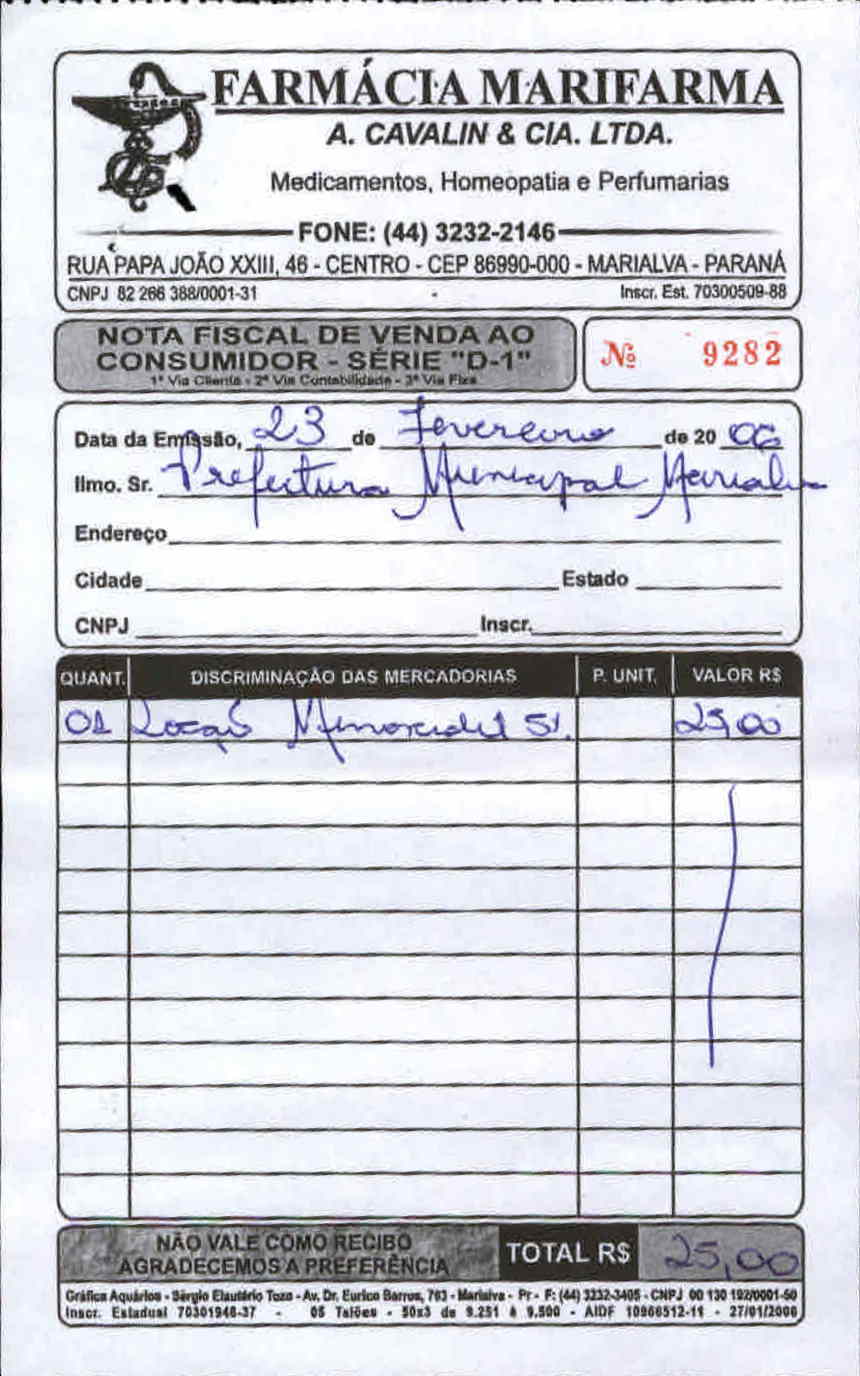 FARMÁCIA MARIFARMA
A. CAVALIN & CIA. LTDA.
Medicamentos, Homeopatia e Perfumarias
FONE: (44) 3232-2146
RUA PAPA JOÃO XXIII, 46 - CENTRO - CEP 86990-000 - MARIALVA - PARANÁ
CNPJ 82 266 388/0001-31 Inscr. Est. 70300509-88
NOTA FISCAL DE VENDA AO
CONSUMIDOR - SÉRIE "D-1"
1ª Via Cliente - 2ª Via Contabilidade - 3ª Via Fixa
Nº 9282
Data da Emissão, 23 de Fevereiro de 20 06
Ilmo. Sr. Prefeitura Municipal Marialva
Endereço
Cidade Estado
CNPJ Inscr.
QUANT. DISCRIMINAÇÃO DAS MERCADORIAS P. UNIT. VALOR R$
01 Loção 25,00
NÃO VALE COMO RECIBO
AGRADECEMOS A PREFERÊNCIA
TOTAL R$ 25,00
Gráfica Aquários - Sérgio Elautério Tozo - Av. Dr. Eurico Barros, 763 - Marialva - Pr - F: (44) 3232-3405 - CNPJ 00 130 192/0001-50
Inscr. Estadual 70301948-37 - 05 Talões - 50x3 de 9.251 à 9.500 - AIDF 10966512-11 - 27/01/2006